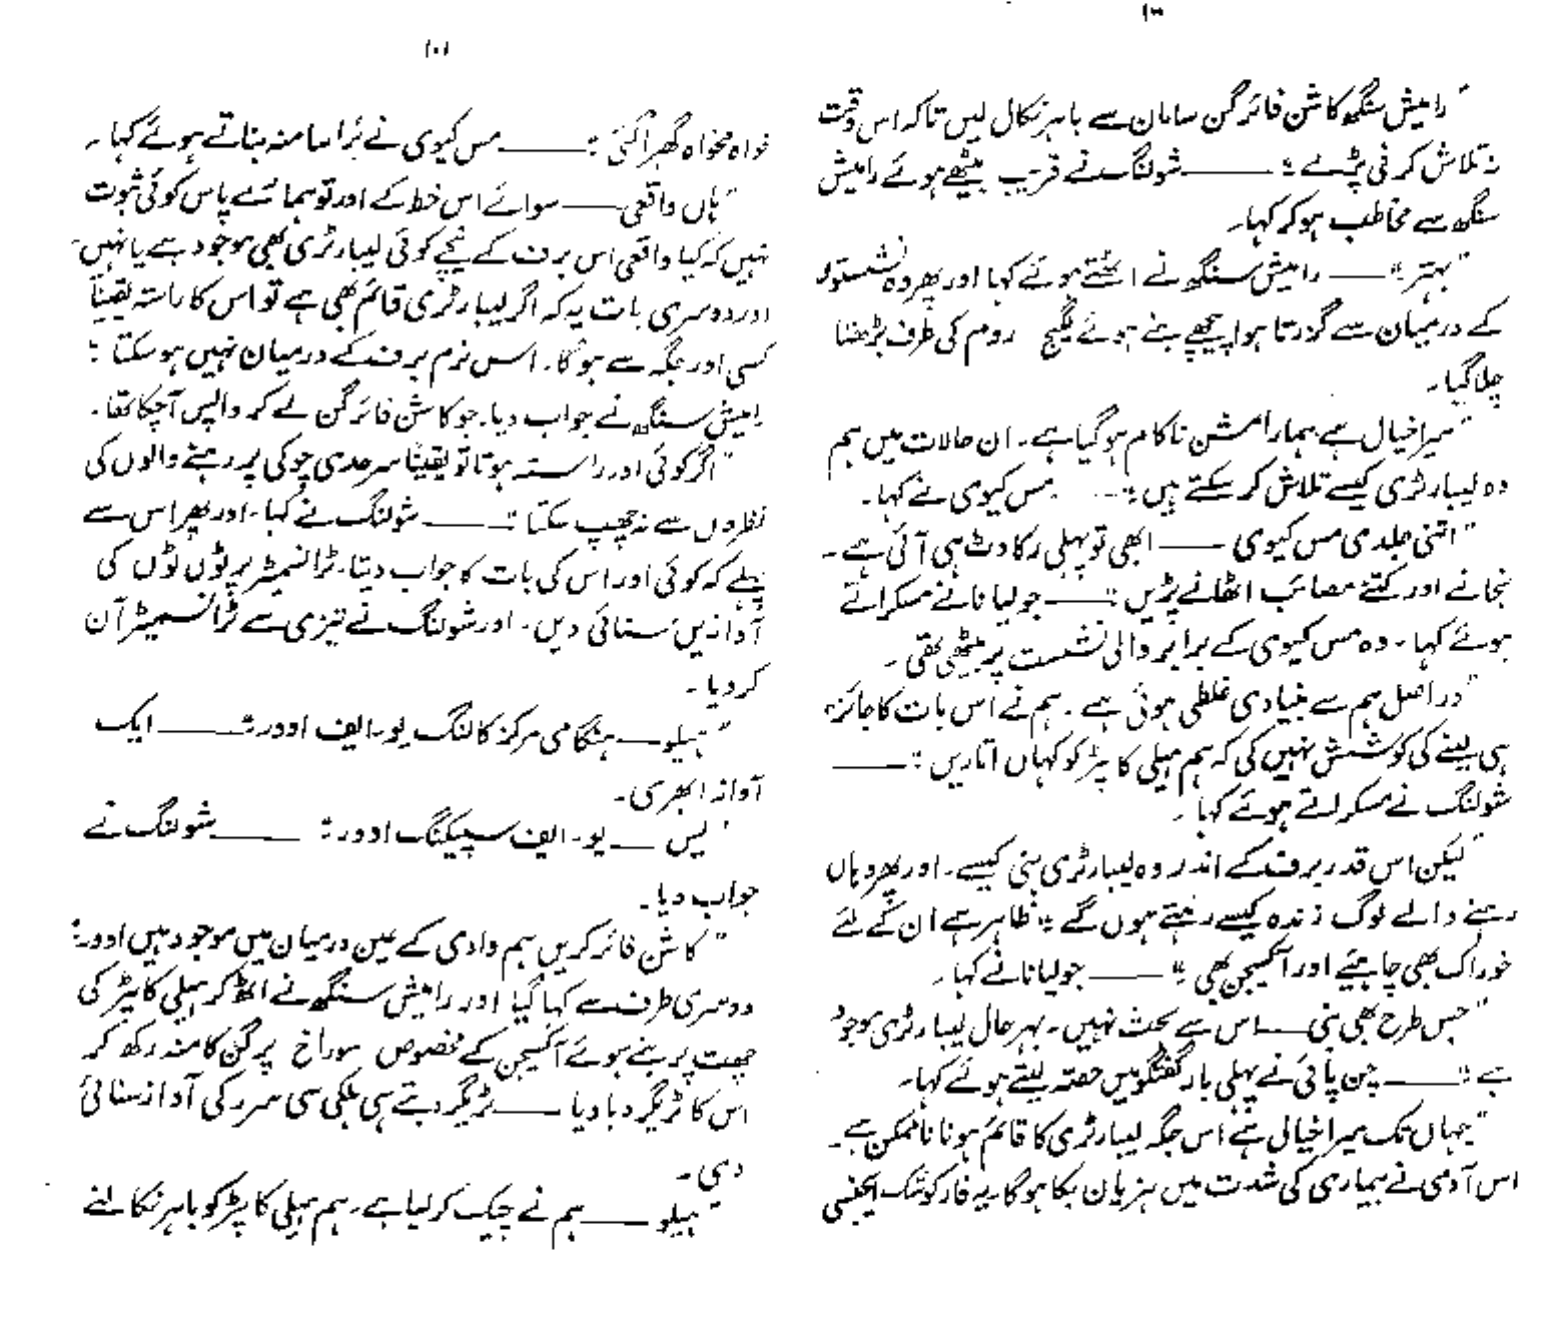 ۱۰۰
"رامیش سنگھ کاشن فائر گن سامان سے باہر نکال لیں تاکہ اس وقت
نہ تلاش کرنی پڑے"۔ ——— شولنگ نے قریب بیٹھے ہوئے رامیش
سنگھ سے مخاطب ہو کر کہا۔
"بہتر"۔ —— رامیش سنگھ نے اٹھتے ہوئے کہا اور پھر وہ نشستوں
کے درمیان سے گزرتا ہوا پیچھے بنے ہوئے لگیج روم کی طرف بڑھتا
چلا گیا۔
"میرا خیال ہے ہمارا مشن ناکام ہو گیا ہے۔ ان حالات میں ہم
وہ لیبارٹری کیسے تلاش کر سکتے ہیں"۔ مس کیوی نے کہا۔
"اتنی جلدی مس کیوی —— ابھی تو پہلی رکاوٹ ہی آئی ہے۔
نجانے اور کتنے مصائب اٹھانے پڑیں"۔ —— جولیانا نے مسکراتے
ہوئے کہا۔ وہ مس کیوی کے برابر والی نشست پر بیٹھی تھی۔
"دراصل ہم سے بنیادی غلطی ہوئی ہے۔ ہم نے اس بات کا جائزہ
ہی لینے کی کوشش نہیں کی کہ ہم ہیلی کاپٹر کو کہاں اتاریں"۔ ——
شولنگ نے مسکراتے ہوئے کہا۔
"لیکن اس قدر برف کے اندر وہ لیبارٹری بنی کیسے۔ اور پھر وہاں
رہنے والے لوگ زندہ کیسے رہتے ہوں گے"۔ ظاہر ہے ان کے لئے
خوراک بھی چاہیئے اور آکسیجن بھی"۔ —— جولیانا نے کہا۔
"جس طرح بھی بنی —— اس سے بحث نہیں۔ بہر حال لیبارٹری موجود
ہے"۔ —— چن پائی نے پہلی بار گفتگو میں حصہ لیتے ہوئے کہا۔
"جہاں تک میرا خیال ہے اس جگہ لیبارٹری کا قائم ہونا ناممکن ہے۔
اس آدمی نے بیماری کی شدت میں ہذیان بکا ہو گا۔ یہ فارکوئنگ ایجنسی
۱۰۱
خواہ مخواہ گھبرا گئی"۔ ——— مس کیوی نے بُرا سا منہ بناتے ہوئے کہا۔
"ہاں واقعی —— سوائے اس خط کے اور تو ہمارے پاس کوئی ثبوت
نہیں کہ کیا واقعی اس برف کے نیچے کوئی لیبارٹری بھی موجود ہے یا نہیں۔
اور دوسری بات یہ کہ اگر لیبارٹری قائم بھی ہے تو اس کا راستہ یقیناً
کسی اور جگہ سے ہو گا۔ اس نرم برف کے درمیان نہیں ہو سکتا"۔
رامیش سنگھ نے جواب دیا۔ جو کاشن فائر گن لے کر واپس آ چکا تھا۔
"اگر کوئی اور راستہ ہوتا تو یقیناً سرحدی چوکی پر رہنے والوں کی
نظروں سے نہ چھپ سکتا"۔ —— شولنگ نے کہا۔ اور پھر اس سے
پہلے کہ کوئی اور اس کی بات کا جواب دیتا۔ ٹرانسمیٹر پر ٹوں ٹوں کی
آوازیں سنائی دیں۔ اور شولنگ نے تیزی سے ٹرانسمیٹر آن
کر دیا۔
"ہیلو —— ہنگامی مرکز کالنگ یو۔ ایف اوور"۔ ——— ایک
آواز ابھری۔
"یس —— یو۔ ایف سپیکنگ اوور"۔ ——— شولنگ نے
جواب دیا۔
"کاشن فائر کریں ہم وادی کے عین درمیان میں موجود ہیں اوور"۔
دوسری طرف سے کہا گیا اور رامیش سنگھ نے اٹھ کر ہیلی کاپٹر کی
چھت پر بنے ہوئے آکسیجن کے مخصوص سوراخ پر گن کا منہ رکھ کر
اس کا ٹریگر دبا دیا —— ٹریگر دبتے ہی ہلکی سی سرر کی آواز سنائی
دی۔
"ہیلو —— ہم نے چیک کر لیا ہے۔ ہم ہیلی کاپٹر کو باہر نکالنے